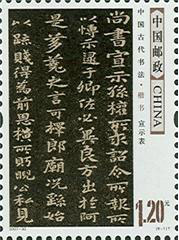 中国邮政
CHINA
中国古代书法·楷书 宣示表
尚書宣示孫權所求詔令所報所
以博示逮于卿佐必冀良方出於阿
是芻蕘之言可擇郎廟況繇始
以疏賤得為前恩橫所盻睨公私見
1.20元
2007-30
(6-1)T